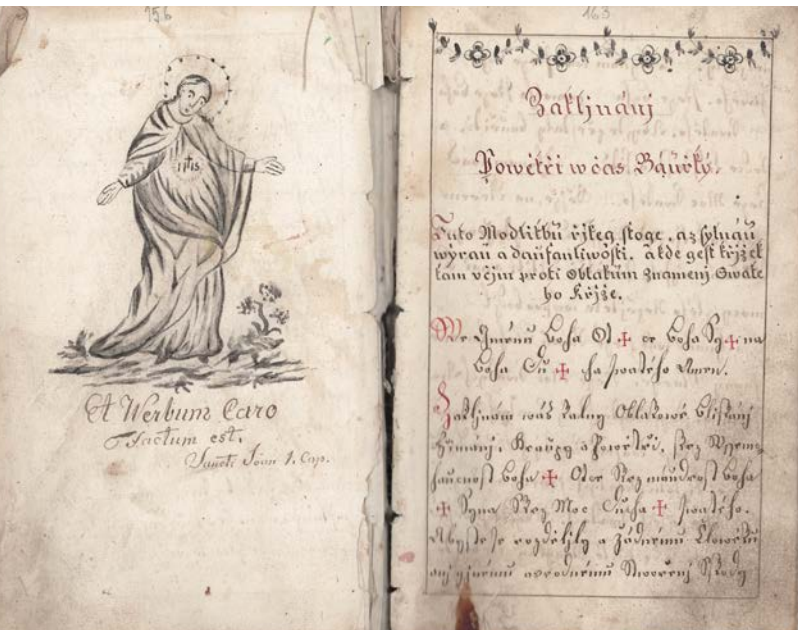 156
IHS
Et Werbum Caro
Factum est.
Sancti Joan 1. Cap.
163
Zakljnánj
Powětřj w čas Bauřky.
Tuto Modlitbu řjkeg stoge, a z sylnau
wýrau a daufanliwosti, a kde gest křjžek
tam včjm proti Oblakům Znamenj Swate
ho Křjže.
We Gménu Boha Ot ✠ ce Boha Sy ✠ na
Boha Du ✠ cha swatého Amen.
Zakljnám wás Oblakowé blískánj
hřmánj, Kraupy a Powětřj, skrz Wssemo
haucnost Boha ✠ Otce Skrz maudrost Boha
✠ Syna Skrz Moc Ducha ✠ swatého.
Abyste se rozdělyly a žádnému Člowěku
anj ginému Stwořenj